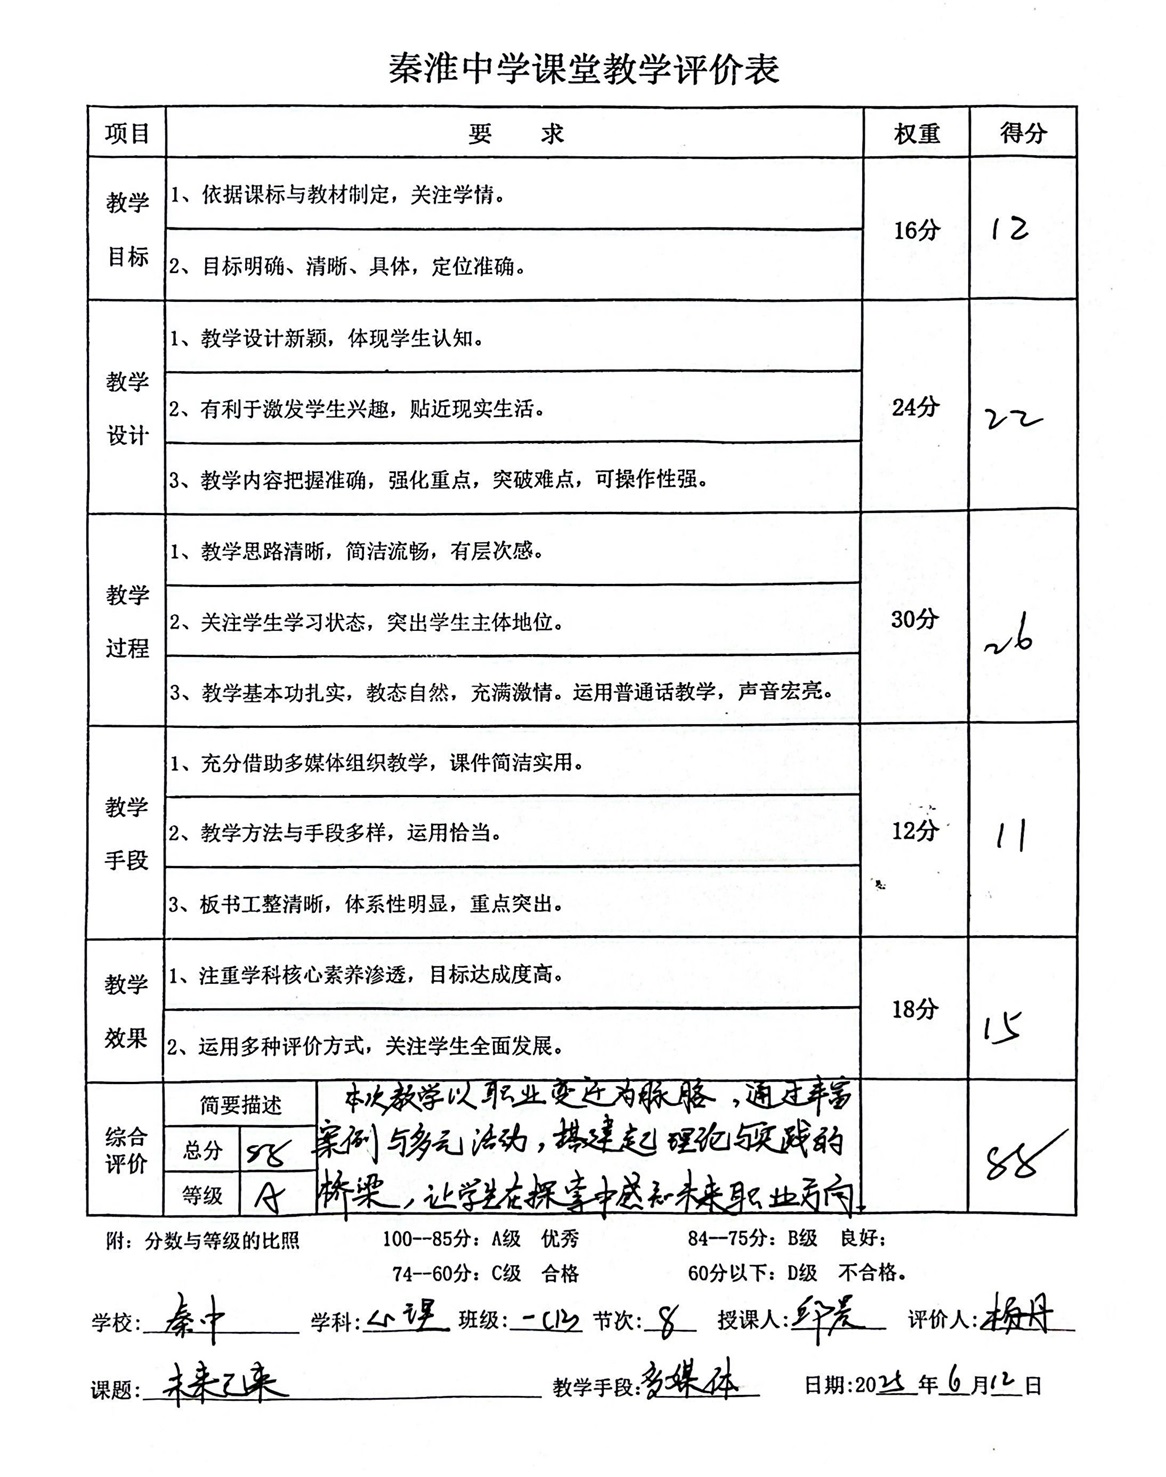 秦淮中学课堂教学评价表
项目 要 求 权重 得分
教学目标
1、依据课标与教材制定，关注学情。
2、目标明确、清晰、具体，定位准确。
16分 12
教学设计
1、教学设计新颖，体现学生认知。
2、有利于激发学生兴趣，贴近现实生活。
3、教学内容把握准确，强化重点，突破难点，可操作性强。
24分 22
教学过程
1、教学思路清晰，简洁流畅，有层次感。
2、关注学生学习状态，突出学生主体地位。
3、教学基本功扎实，教态自然，充满激情。运用普通话教学，声音宏亮。
30分 26
教学手段
1、充分借助多媒体组织教学，课件简洁实用。
2、教学方法与手段多样，运用恰当。
3、板书工整清晰，体系性明显，重点突出。
12分 11
教学效果
1、注重学科核心素养渗透，目标达成度高。
2、运用多种评价方式，关注学生全面发展。
18分 15
综合评价
简要描述
总分 88
等级 A
本次教学以职业变迁为脉胳，通过丰富
案例与多元活动，搭建起理论与实践的
桥梁，让学生在探索中感知未来职业方向。
88
附：分数与等级的比照 100--85分：A级 优秀 84--75分：B级 良好；
74--60分：C级 合格 60分以下：D级 不合格。
学校:秦中 学科:心理 班级: 节次:8 授课人: 评价人:杨丹
课题:未来已来 教学手段:多媒体 日期:2025年6月12日